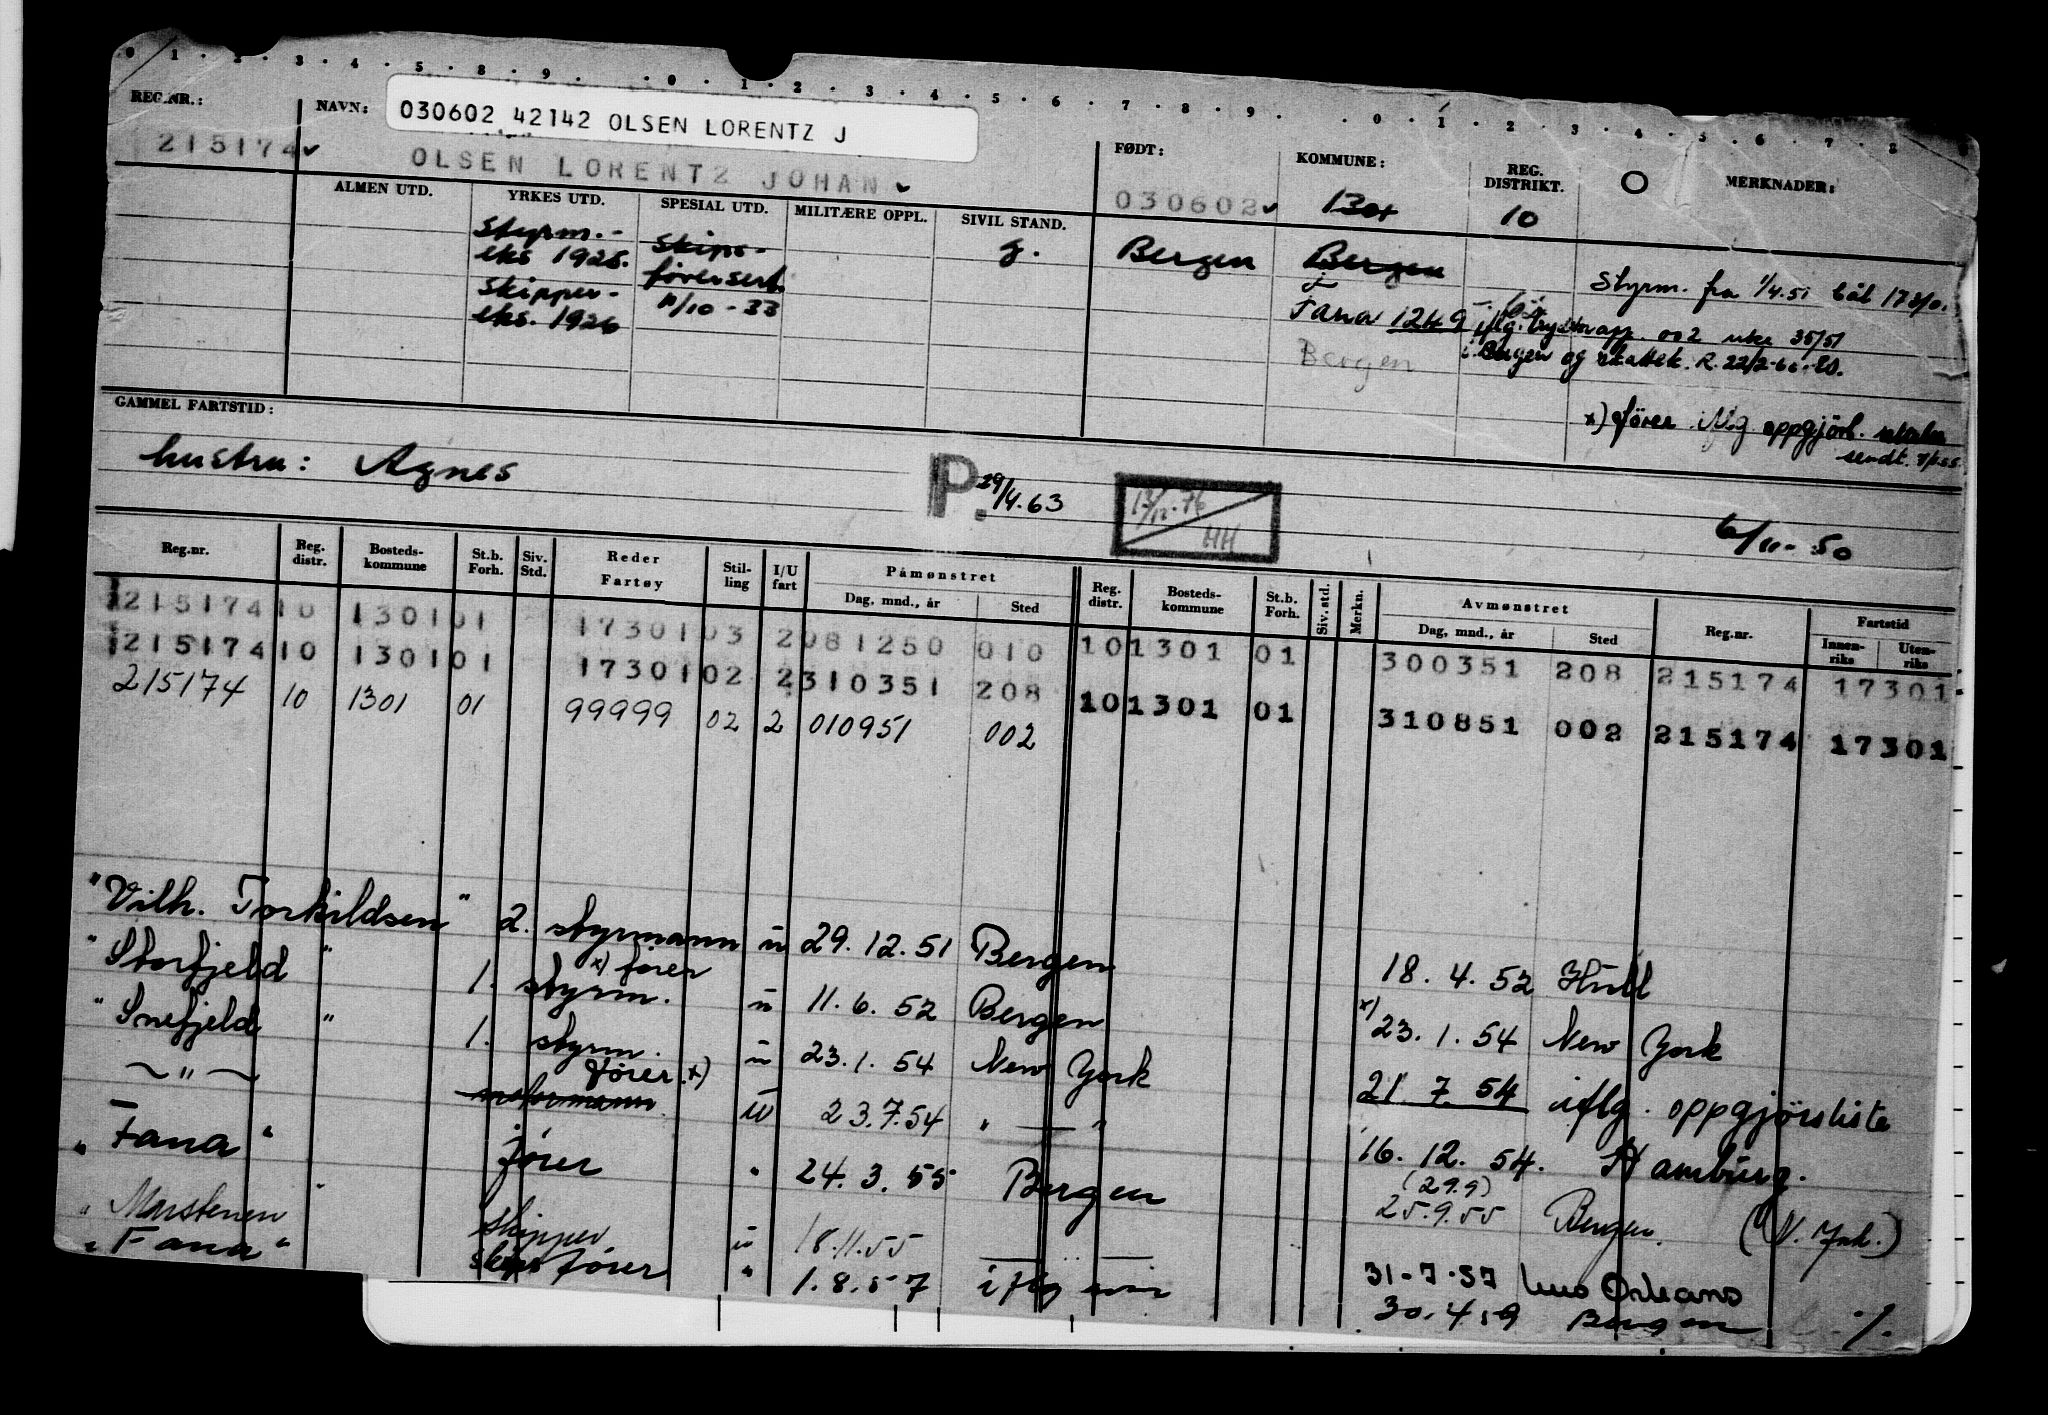 0 1 2 3 4 5 8 9 0 1 2 3 4 5 6 7 8 9 0 1 2 3 4 5 6 7 8
REG.NR.: NAVN: FØDT: KOMMUNE: REG. DISTRIKT. O MERKNADER:
030602 42142 OLSEN LORENTZ J
215174 OLSEN LORENTZ JOHAN 030602 1301 10
ALMEN UTD. YRKES UTD. SPESIAL UTD. MILITÆRE OPPL. SIVIL STAND.
Styrm.- Skips- g. Bergen Bergen
eks 1925. førersert. Styrm. fra 1/4.51 båt 17301.
Skipper- 11/10-33 Fana 1249
eks. 1926 app. 002 uke 35/51
Bergen i Bergen og skattek. R. 22/2-66.
x) fører iflg. oppgjörl.
sendt.
GAMMEL FARTSTID:
hustru: Agnes P. 29/4.63 13/12-76 HH 6/11-50
Reg.nr. Reg. distr. Bosteds-kommune St.b. Forh. Siv. Std. Reder Fartøy Stil-ling I/U fart Påmønstret Dag, mnd., år Sted Reg. distr. Bosteds-kommune St.b. Forh. Siv. std. Merkn. Avmønstret Dag, mnd., år Sted Reg.nr. Fartstid Innen-riks Uten-riks
215174 10 1301 01 17301 03 2 081250 010 10 1301 01 300351 208 215174 17301
215174 10 1301 01 17301 02 2 310351 208 10 1301 01 310851 002 215174 17301
215174 10 1301 01 99999 02 2 010951 002
"Vilh. Torkildsen" 2. styrmann u 29.12.51 Bergen 18.4.52 Hull
x) fører
"Storfjeld" 1. styrm. u 11.6.52 Bergen x) 23.1.54 New York
"Snefjeld" 1. styrm. u 23.1.54 New York 21.7.54 iflg. oppgjørsliste
fører x)
— " — u 23.7.54 " — " 16.12.54. Hamburg.
(29.9)
"Fana" fører " 24.3.55 Bergen 25.9.55 Bergen.
"Marstenen" skipper u 18.11.55 — " —
31-7-57 New Orleans
"Fana" skipsfører " 1.8.57 iflg 30.4.59 Bergen